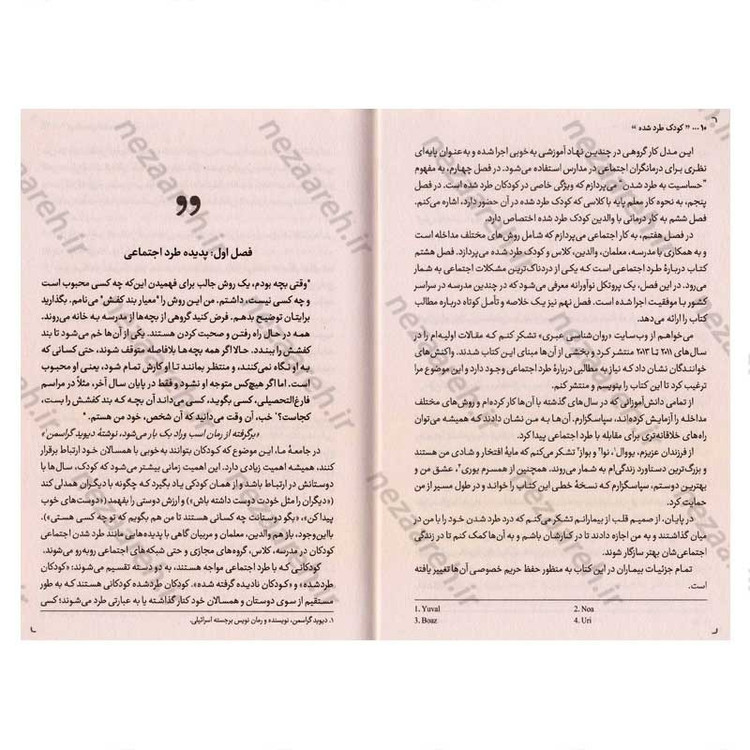 ۱۰ ... « کودک طرد شده »
این مدل کار گروهی در چندین نهاد آموزشی به‌خوبی اجرا شده و به‌عنوان پایه‌ای
نظری برای درمانگران اجتماعی در مدارس استفاده می‌شود. در فصل چهارم، به مفهوم
"حساسیت به طرد شدن" می‌پردازم که ویژگی خاصی در کودکان طرد شده است. در فصل
پنجم، به نحوه کار معلم پایه با کلاسی که کودک طرد شده در آن حضور دارد، اشاره می‌کنم.
فصل ششم به کار درمانی با والدین کودک طرد شده اختصاص دارد.
در فصل هفتم، به کار اجتماعی می‌پردازم که شامل روش‌های مختلف مداخله است
و به همکاری با مدرسه، معلمان، والدین، کلاس و کودک طرد شده می‌پردازم. فصل هشتم
کتاب دربارهٔ طرد اجتماعی است که یکی از دردناک‌ترین مشکلات اجتماعی به شمار
می‌رود. در این فصل، یک پروتکل نوآورانه معرفی می‌شود که در چندین مدرسه در سراسر
کشور با موفقیت اجرا شده است. فصل نهم نیز یک خلاصه و تأمل کوتاه درباره مطالب
کتاب را ارائه می‌دهد.
می‌خواهم از وب‌سایت «روان‌شناسی عبری» تشکر کنم که مقالات اولیه‌ام را در
سال‌های ۲۰۱۱ تا ۲۰۱۳ منتشر کرد و بخشی از آن‌ها مبنای این کتاب شدند. واکنش‌های
خوانندگان نشان داد که نیاز به مطالبی دربارهٔ طرد اجتماعی وجود دارد و این موضوع مرا
ترغیب کرد تا این کتاب را بنویسم و منتشر کنم.
از تمامی دانش‌آموزانی که در سال‌های گذشته با آن‌ها کار کرده‌ام و روش‌های مختلف
مداخله را آزمایش کرده‌اند، سپاسگزارم. آن‌ها به من نشان دادند که همیشه می‌توان
راه‌های خلاقانه‌تری برای مقابله با طرد اجتماعی پیدا کرد.
از فرزندان عزیزم، یووال۱، نوا۲ و بواز۳ تشکر می‌کنم که مایهٔ افتخار و شادی من هستند
و بزرگ‌ترین دستاورد زندگی‌ام به شمار می‌روند. همچنین از همسرم یوری۴، عشق من و
بهترین دوستم، سپاسگزارم که نسخهٔ خطی این کتاب را خواند و در طول مسیر از من
حمایت کرد.
در پایان، از صمیم قلب از بیمارانم تشکر می‌کنم که درد طرد شدن خود را با من در
میان گذاشتند و به من اجازه دادند تا در کنارشان باشم و به آن‌ها کمک کنم تا در زندگی
اجتماعی‌شان بهتر سازگار شوند.
تمام جزئیات بیماران در این کتاب به منظور حفظ حریم خصوصی آن‌ها تغییر یافته
است.
1. Yuval 2. Noa
3. Boaz 4. Uri
فصل اول: پدیده طرد اجتماعی
"وقتی بچه بودم، یک روش جالب برای فهمیدن این‌که چه کسی محبوب است
و چه کسی نیست، داشتم. من این روش را "معیار بند کفش" می‌نامم. بگذارید
برایتان توضیح بدهم. فرض کنید گروهی از بچه‌ها از مدرسه به خانه می‌روند.
همه در حال راه رفتن و صحبت کردن هستند. یکی از آن‌ها خم می‌شود تا بند
کفشش را ببندد. حالا اگر همه بچه‌ها بلافاصله متوقف شوند، حتی کسانی که
به او نگاه نمی‌کنند، و منتظر بمانند تا او کارش تمام شود، یعنی او محبوب
است. اما اگر هیچ‌کس متوجه او نشود و فقط در پایان سال آخر، مثلاً در مراسم
فارغ‌التحصیلی، کسی بگوید، کسی می‌داند آن بچه که بند کفشش را بست،
کجاست؟' خب، آن وقت می‌دانید که آن شخص، خود من هستم."
«برگرفته از رمان اسب وراد یک بار می‌شود، نوشتهٔ دیوید گراسمن۱»
در جامعهٔ ما، این موضوع که کودکان بتوانند به خوبی با همسالان خود ارتباط برقرار
کنند، همیشه اهمیت زیادی دارد. این اهمیت زمانی بیشتر می‌شود که کودک، سال‌ها با
دوستانش در ارتباط باشد و از همان کودکی یاد بگیرد که چگونه با دیگران همدلی کند
(«دیگران را مثل خودت دوست داشته باش») و ارزش دوستی را بفهمد («دوست‌های خوب
پیدا کن»، «بگو دوستانت چه کسانی هستند تا من هم بگویم که تو چه کسی هستی»).
بااین‌وجود، باز هم والدین، معلمان و مربیان گاهی با پدیده‌هایی مانند طرد شدن اجتماعی
کودکان در مدرسه، کلاس، گروه‌های مجازی و حتی شبکه‌های اجتماعی روبه‌رو می‌شوند.
کودکانی که با طرد اجتماعی مواجه هستند، به دو دسته تقسیم می‌شوند؛ «کودکان
طردشده» و «کودکان نادیده گرفته شده». کودکان طردشده کودکانی هستند که به طور
مستقیم از سوی دوستان و همسالان خود کنار گذاشته یا به عبارتی طرد می‌شوند؛ کسی
۱. دیوید گراسمن، نویسنده و رمان نویس برجسته اسرائیلی.
nezaareh.ir